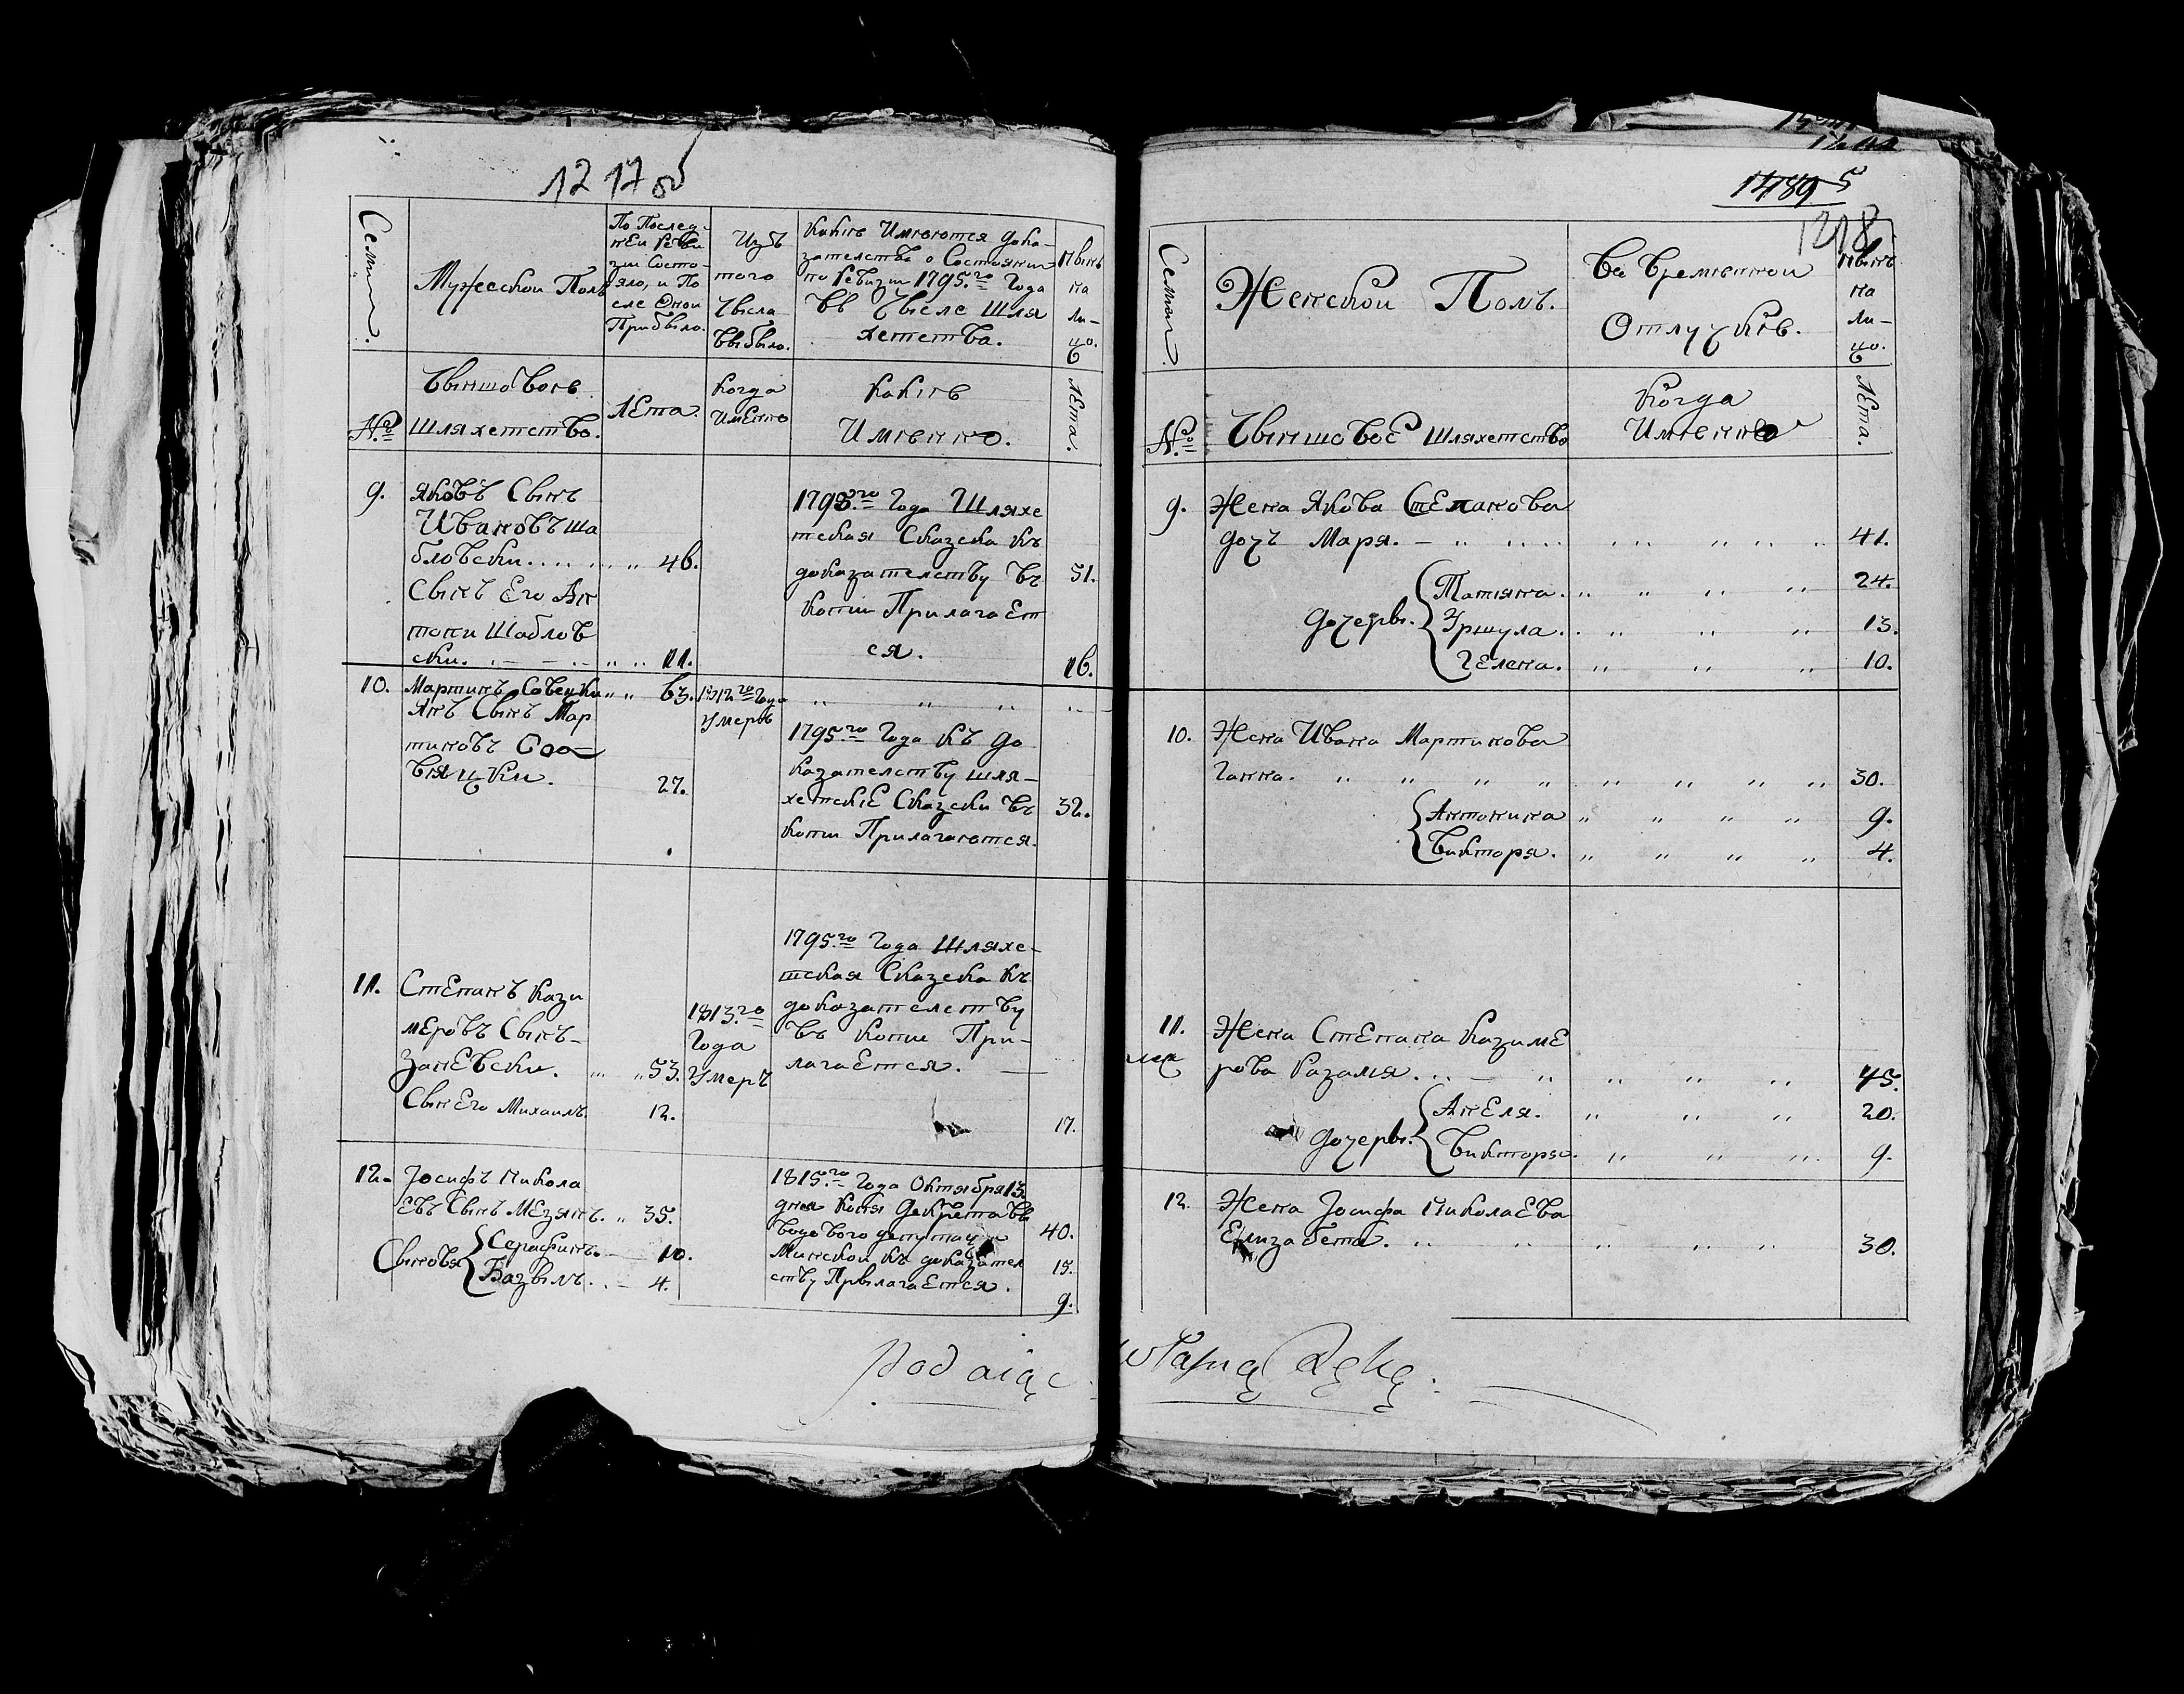 12 17 об
Семьи.
Мужескои Полъ
По Послед-
неи Реви
зии Состо-
яло, и По
сле Оной
Прибыло.
Изъ
того
Числа
Выбыло.
Какіе Имеются дока-
зателства о Состоянии
по Ревизіи 1795.го Года
въ Числе Шля
хетства.
Нынѣ
на
Ли-
цо.
№
Чыншовое
Шляхетство.
Лета.
Когда
Именно
Какіе
Именно.
Лета.
9.
Яковъ Сынъ
Ивановъ Ша
бловски. 46.
Сынъ Его Ан
тони Шаблов
ски. 11.
1795.го Года Шляхе
тская Сказска къ
доказателству въ
Копіи Прилагает
ся.
51.
16.
10.
Мартинъ Совецки 63.
1812.го Года
Умеръ
Янъ Сынъ Мар
тиновъ Со-
вяцки. 27.
1795.го Года къ до
казателству шля-
хетскіе Сказски въ
Копіи Прилагаются.
32.
11.
Степанъ Кази
меровъ Сынъ
Заневски. 53.
Сынъ Его Михаилъ 12.
1813.го
Года
Умеръ
1795.го Года Шляхе-
тская Сказска къ
доказателству
въ Копіи При-
лагается.
17.
12.
Іосифъ Никола
евъ Сынъ Мезянъ. 35.
Сыновя
Серафинъ. 10.
Базылъ. 4.
1815.го Года Октября 13
дня Копія Декрета Вы
водового депутаціи
Минской къ доказател
ству Прылагается.
40.
15.
9.
Podaiąc
14895
1218
Семьи.
Женскои Полъ.
Во Временнои
Отлучкѣ.
Нынѣ
на
Ли-
цо.
№
Чыншовое Шляхетство
Когда
Именно
Лета.
9. Жена Якова Степанова
дочъ Маря. 41.
Дочеры.
Татяна. 24.
Уршула. 13.
Гелена. 10.
10. Жена Ивана Мартинова
Ганна. 30.
Антонина 9.
Викторя. 4.
11. Жена Степана Казиме
рова Разаля. 45.
Дочеры.
Анеля. 20.
Викторя. 9.
12. Жена Іосифа Николаева
Елизабета. 30.
własną Ręką.